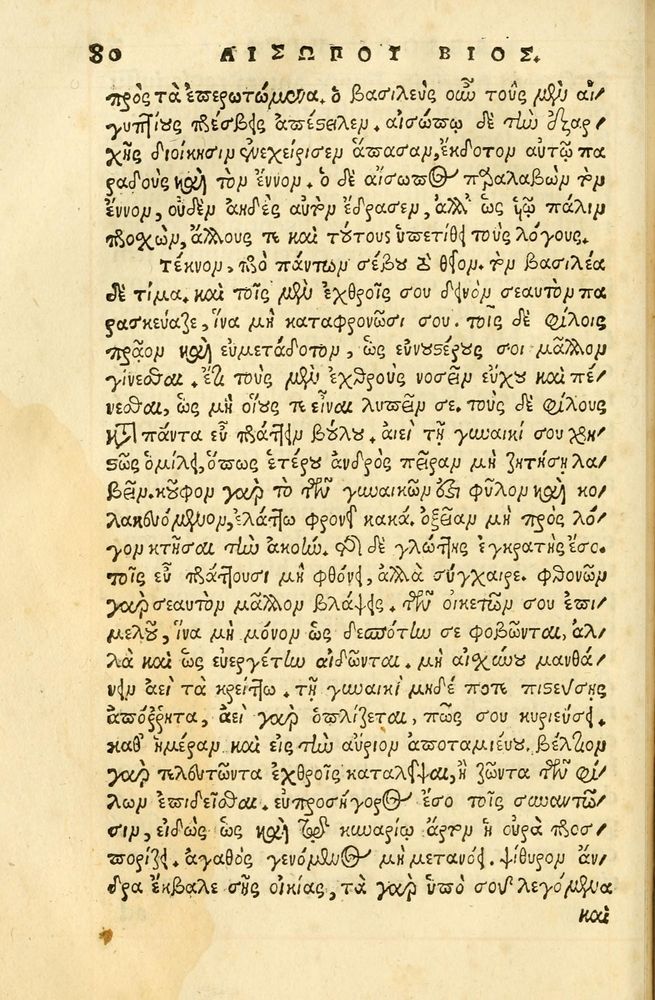 80 ΑΙΣΩΠΟΥ ΒΙΟΣ.
πρὸς τὰ ἐπερωτώμενα. ὁ βασιλεὺς οὖν τοὺς μὲν αἰ-
γυπτίους πρέσβεις ἀπέστειλεν. αἰσώπῳ δὲ τὴν ἐξαρ-
χῆς διοίκησιν ἐνεχείρισεν ἅπασαν, ἔκδοτον αὐτῷ πα
ραδοὺς καὶ τὸν ἔννον. ὁ δὲ αἴσωπος παραλαβὼν τὸν
ἔννον, οὐδὲν ἀηδὲς αὐτὸν ἔδρασεν, ἀλλ' ὡς υἱῷ πάλιν
προσχὼν, ἄλλους τε καὶ τούτους ὑπετίθει τοὺς λόγους.
Τέκνον, πρὸ πάντων σέβου τὸ θεῖον. τὸν βασιλέα
δὲ τίμα. καὶ τοῖς μὲν ἐχθροῖς σου δεινὸν σεαυτὸν πα
ρασκεύαζε, ἵνα μὴ καταφρονῶσί σου. τοῖς δὲ φίλοις
πρᾶον καὶ εὐμετάδοτον, ὡς εὐνουστέρους σοι μᾶλλον
γίνεσθαι. ἔτι τοὺς μὲν ἐχθροὺς νοσεῖν εὔχου καὶ πέ-
νεσθαι, ὡς μὴ οἵους τε εἶναι λυπεῖν σε. τοὺς δὲ φίλους
κατὰ πάντα εὖ πράττειν βούλου. αἰεὶ τῇ γυναικί σου χρη-
στῶς ὁμίλει, ὅπως ἑτέρου ἀνδρὸς πεῖραν μὴ ζητήσῃ λα-
βεῖν. κοῦφον γὰρ τὸ τῶν γυναικῶν ἐστι φῦλον καὶ κο-
λακευόμενον, ἐλάττω φρονεῖ κακά. ὀξεῖαν μὴ πρὸς λό-
γον κτῆσαι τὴν ἀκοήν. τῆς δὲ γλώττης ἐγκρατὴς ἔσο.
τοῖς εὖ πράττουσι μὴ φθόνει, ἀλλὰ σύγχαιρε. φθονῶν
γὰρ σεαυτὸν μᾶλλον βλάψεις. τῶν οἰκετῶν σου ἐπι-
μελοῦ, ἵνα μὴ μόνον ὡς δεσπότην σε φοβῶνται, ἀλ-
λὰ καὶ ὡς εὐεργέτην αἰδῶνται. μὴ αἰσχύνου μανθά-
νειν ἀεὶ τὰ κρείττω. τῇ γυναικὶ μηδέ ποτε πιστεύσῃς
ἀπόῤῥητα, ἀεὶ γὰρ ὁπλίζεται, πῶς σου κυριεύσει.
καθ' ἡμέραν καὶ εἰς τὴν αὔριον ἀποταμιεύου. βέλτιον
γὰρ τελευτῶντα ἐχθροῖς καταλεῖψαι, ἢ ζῶντα τῶν φί-
λων ἐπιδεῖσθαι. εὐπροσήγορος ἔσο τοῖς συναντῶ-
σιν, εἰδὼς ὡς καὶ τῷ κυναρίῳ ἄρτον ἡ οὐρὰ προσ-
πορίζει. ἀγαθὸς γενόμενος μὴ μετανόει. ψίθυρον ἄν-
δρα ἔκβαλε σῆς οἰκίας, τὰ γὰρ ὑπὸ σοῦ λεγόμενα
καὶ